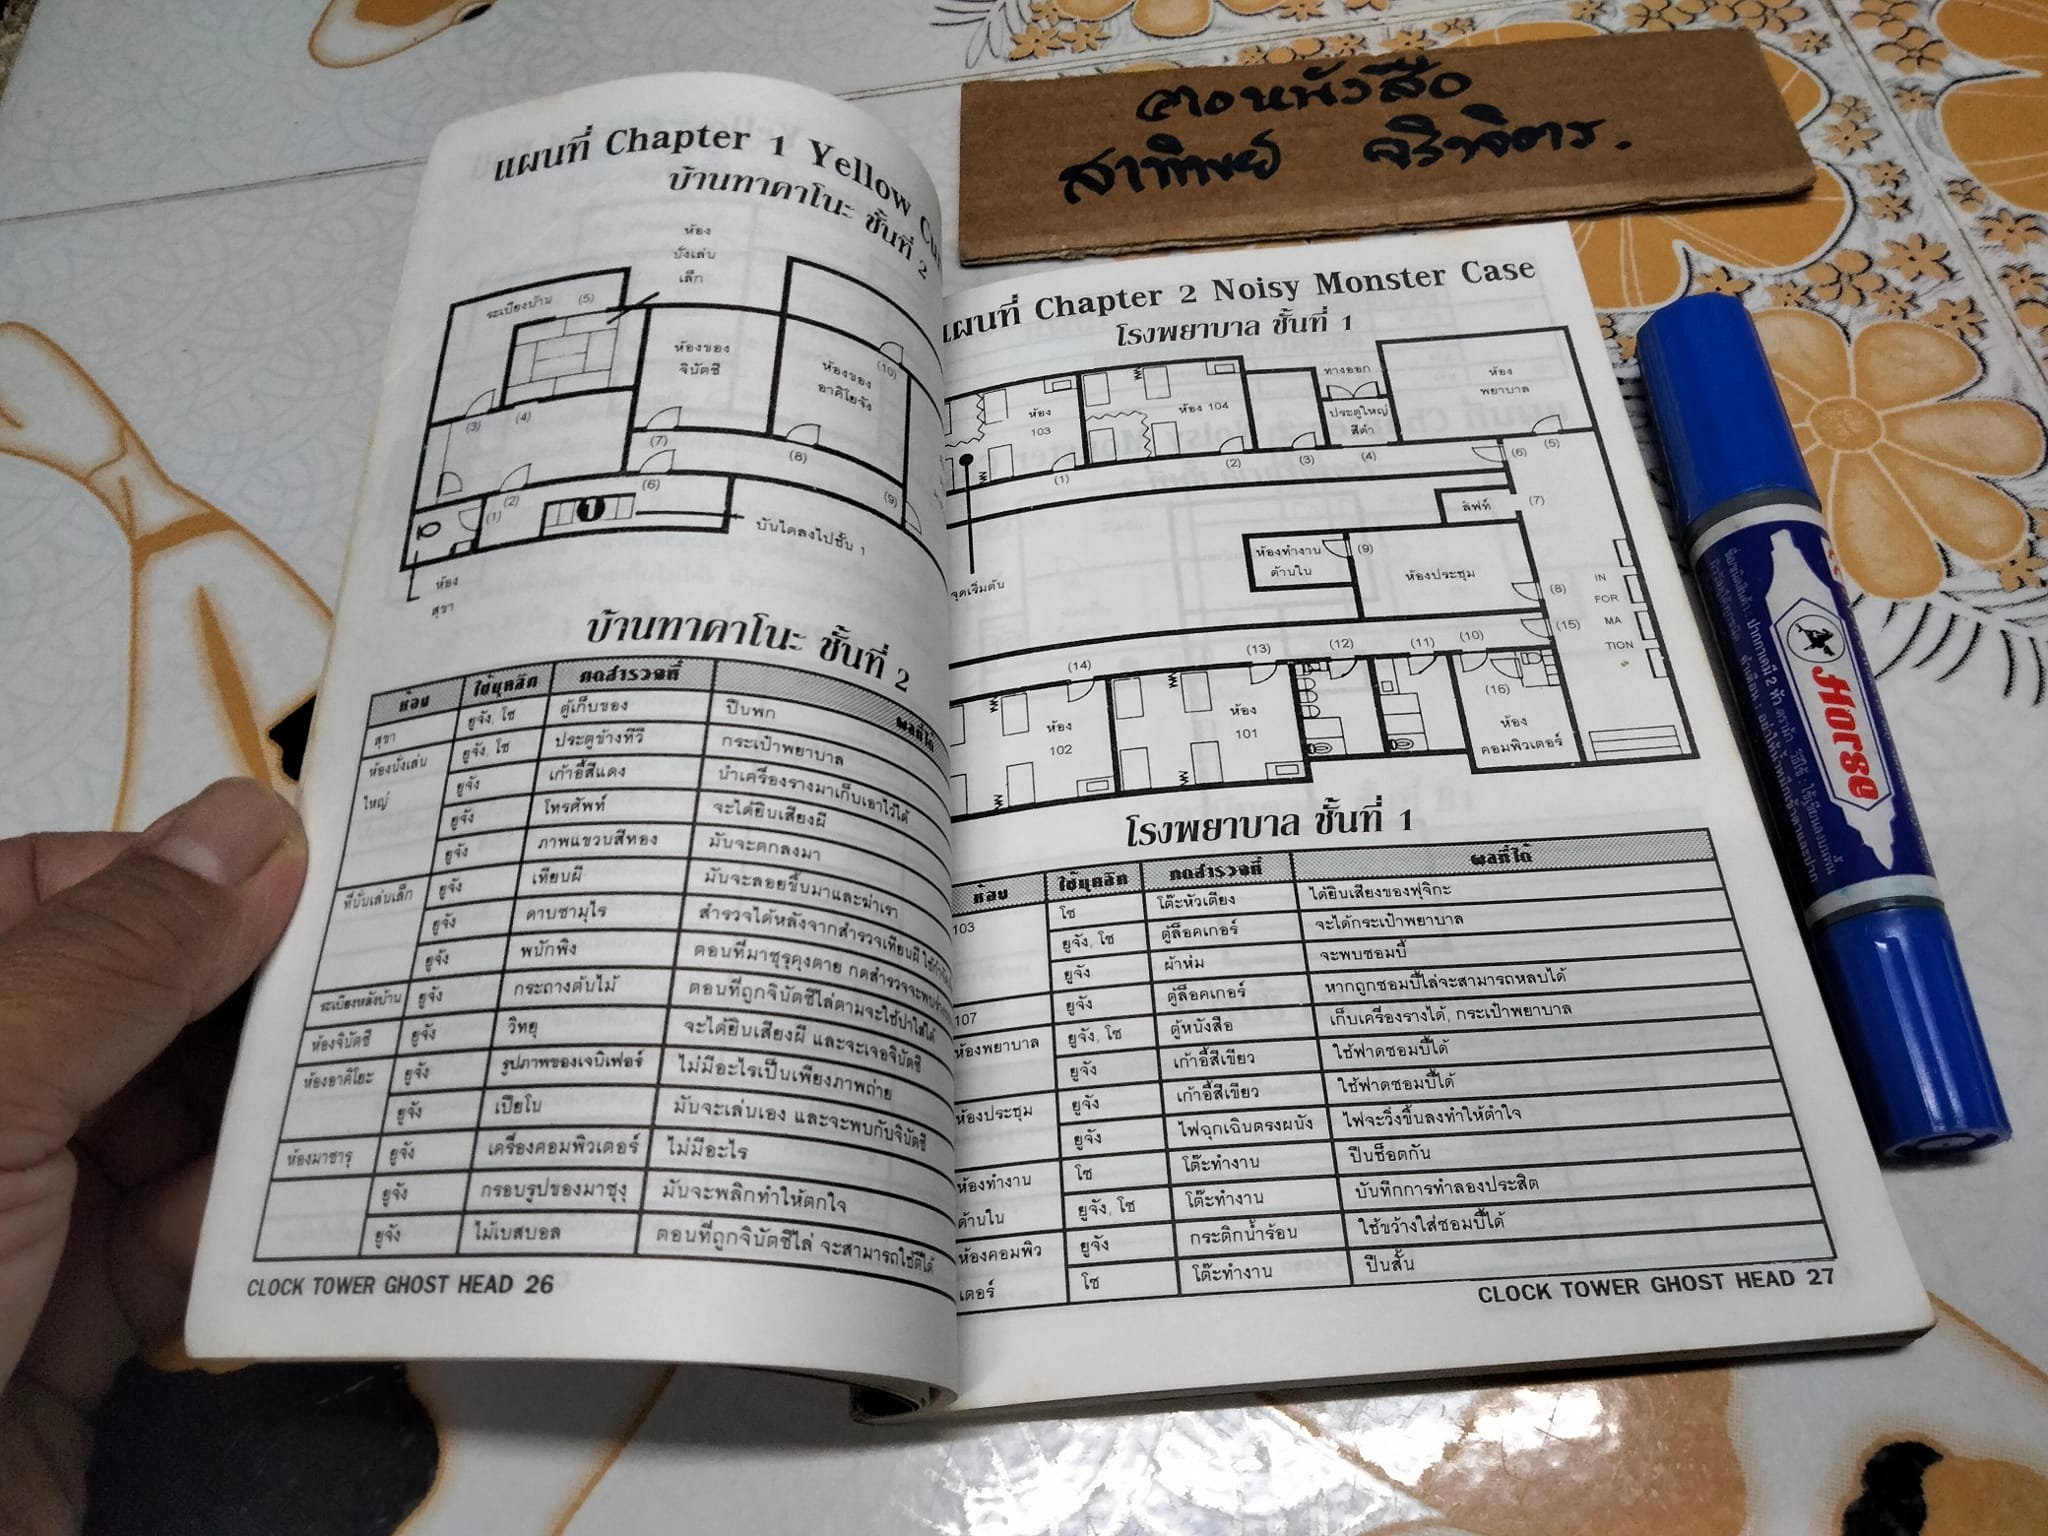 แผนที่ Chapter 1 Yellow
บ้านทาคาโนะ ชั้นที่ 2
ห้อง
นั่งเล่น
เล็ก
ระเบียงบ้าน (5)
ห้องของ
จินัตซึ
(10)
ห้องของ
อาคิโยจัง
(3) (4)
(7)
(8)
(1) (2) (6) (9)
1
บันไดลงไปชั้น 1
ห้อง
สุขา
บ้านทาคาโนะ ชั้นที่ 2
ห้อง ใช้บุคลิก กดสำรวจที่ ผลที่ได้
สุขา ยูจัง, โช ตู้เก็บของ ปืนพก
ห้องนั่งเล่น ยูจัง, โช ประตูข้างทีวี กระเป๋าพยาบาล
ใหญ่ ยูจัง เก้าอี้สีแดง นำเครื่องรางมาเก็บเอาไว้ได้
ยูจัง โทรศัพท์ จะได้ยินเสียงผี
ยูจัง ภาพแขวนสีทอง มันจะตกลงมา
ที่นั่นเล่นเล็ก ยูจัง เทียนผี มันจะลอยขึ้นมาและฆ่าเรา
ยูจัง ดาบซามุไร สำรวจได้หลังจากสำรวจเทียนผี
ยูจัง พนักพิง ตอนที่มาซุรุคุงตาย กดสำรวจจะพบ
ระเบียงหลังบ้าน ยูจัง กระถางต้นไม้ ตอนที่ถูกจินัตซึไล่ตามจะใช้ปาใส่ได้
ห้องจินัตซึ ยูจัง วิทยุ จะได้ยินเสียงผี และจะเจอจินัตซึ
ห้องอาคิโยะ ยูจัง รูปภาพของเจนิเฟอร์ ไม่มีอะไรเป็นเพียงภาพถ่าย
ยูจัง เปียโน มันจะเล่นเอง และจะพบกับจินัตซึ
ห้องมาซารุ ยูจัง เครื่องคอมพิวเตอร์ ไม่มีอะไร
ยูจัง กรอบรูปของมาซุงุ มันจะพลิกทำให้ตกใจ
ยูจัง ไม้เบสบอล ตอนที่ถูกจินัตซึไล่ จะสามารถใช้ตีได้
CLOCK TOWER GHOST HEAD 26
แผนที่ Chapter 2 Noisy Monster Case
โรงพยาบาล ชั้นที่ 1
ห้อง
103
ห้อง 104
ทางออก
ประตูใหญ่
สีดำ
ห้อง
พยาบาล
(1) (2) (3) (4) (5)
(6)
(7)
ลิฟท์
ห้องทำงาน
ด้านใน
(9)
ห้องประชุม
(8)
จุดเริ่มต้น
IN
FOR
MA
TION
(14) (13) (12) (11) (10) (15)
(16)
ห้อง
102
ห้อง
101
ห้อง
คอมพิวเตอร์
โรงพยาบาล ชั้นที่ 1
ห้อง ใช้บุคลิก กดสำรวจที่ ผลที่ได้
103 โช โต๊ะหัวเตียง ได้ยินเสียงของฟุจิกะ
ยูจัง, โช ตู้ล็อคเกอร์ จะได้กระเป๋าพยาบาล
ยูจัง ผ้าห่ม จะพบซอมบี้
107 ยูจัง ตู้ล็อคเกอร์ หากถูกซอมบี้ไล่จะสามารถหลบได้
ห้องพยาบาล ยูจัง, โช ตู้หนังสือ เก็บเครื่องรางได้, กระเป๋าพยาบาล
ยูจัง เก้าอี้สีเขียว ใช้ฟาดซอมบี้ได้
ห้องประชุม ยูจัง เก้าอี้สีเขียว ใช้ฟาดซอมบี้ได้
ยูจัง ไฟฉุกเฉินตรงผนัง ไฟจะวิ่งขึ้นลงทำให้ตำใจ
ห้องทำงาน โช โต๊ะทำงาน ปืนช็อตกัน
ด้านใน ยูจัง, โช โต๊ะทำงาน บันทึกการทำลองประสิต
ห้องคอมพิว ยูจัง กระติกน้ำร้อน ใช้ขว้างใส่ซอมบี้ได้
เตอร์ โช โต๊ะทำงาน ปืนสั้น
CLOCK TOWER GHOST HEAD 27
Horse